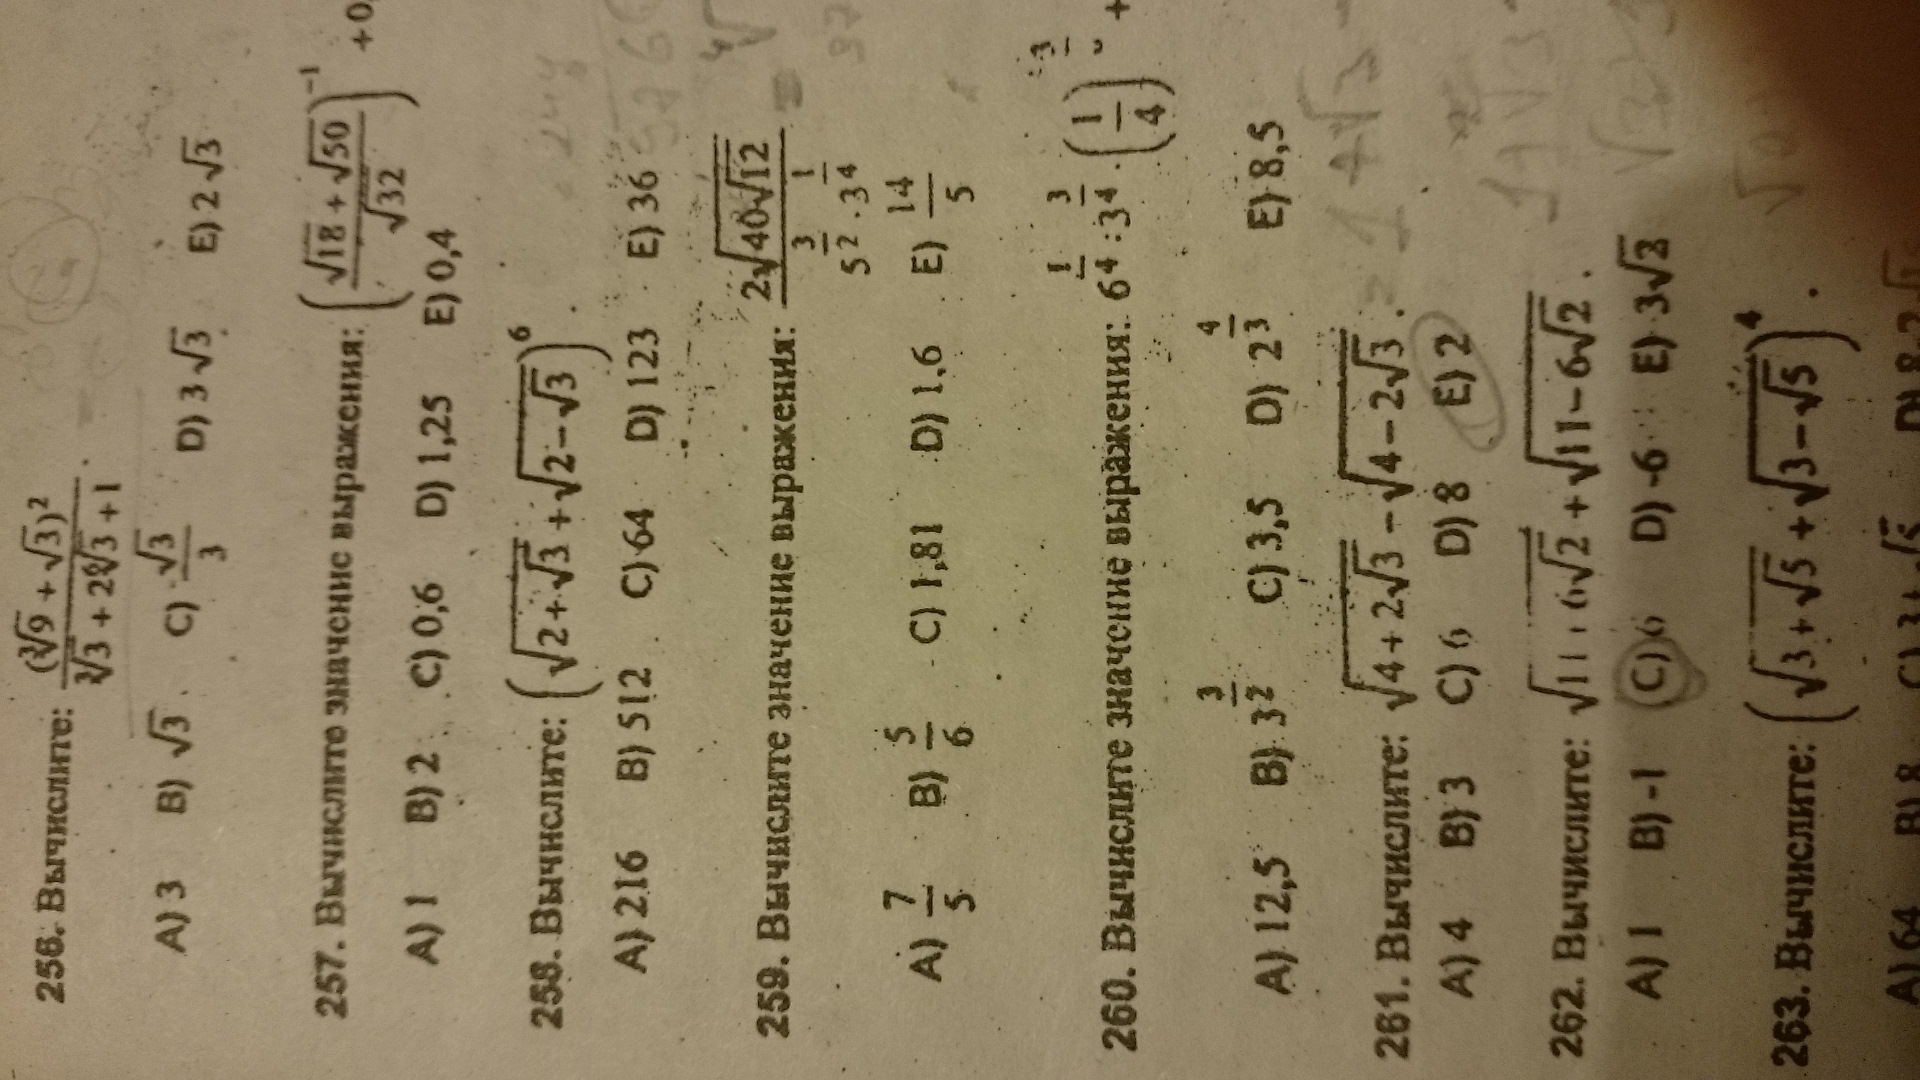 256. Вычислите: (∛9 + √3)² / (∛3 + 2⁶√3 + 1).
A) 3 B) √3 C) √3/3 D) 3√3 E) 2√3
257. Вычислите значение выражения: ((√18 + √50)/√32)⁻¹ + 0,
A) 1 B) 2 C) 0,6 D) 1,25 E) 0,4
258. Вычислите: (√(2+√3) + √(2−√3))⁶.
A) 216 B) 512 C) 64 D) 123 E) 36
259. Вычислите значение выражения: 2√(40√12) / (5^(3/2) · 3^(1/4))
A) 7/5 B) 5/6 C) 1,81 D) 1,6 E) 14/5
260. Вычислите значение выражения: 6^(1/4) : 3^(3/4) · (1/4) +
A) 12,5 B) 3^(3/2) C) 3,5 D) 2^(4/3) E) 8,5
261. Вычислите: √(4+2√3) − √(4−2√3).
A) 4 B) 3 C) 6 D) 8 E) 2
262. Вычислите: √(11+6√2) + √(11−6√2).
A) 1 B) -1 C) 6 D) -6 E) 3√2
263. Вычислите: (√(3+√5) + √(3−√5))⁴.
A) 64 B) 8